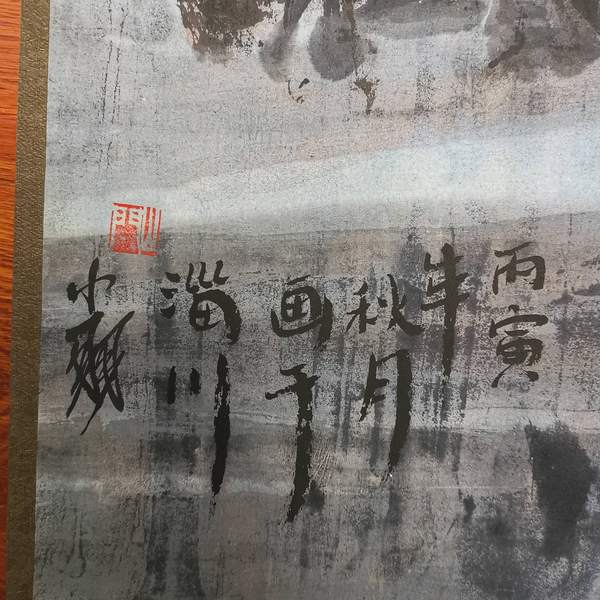 丙寅
年
秋月
画于
淄川
小